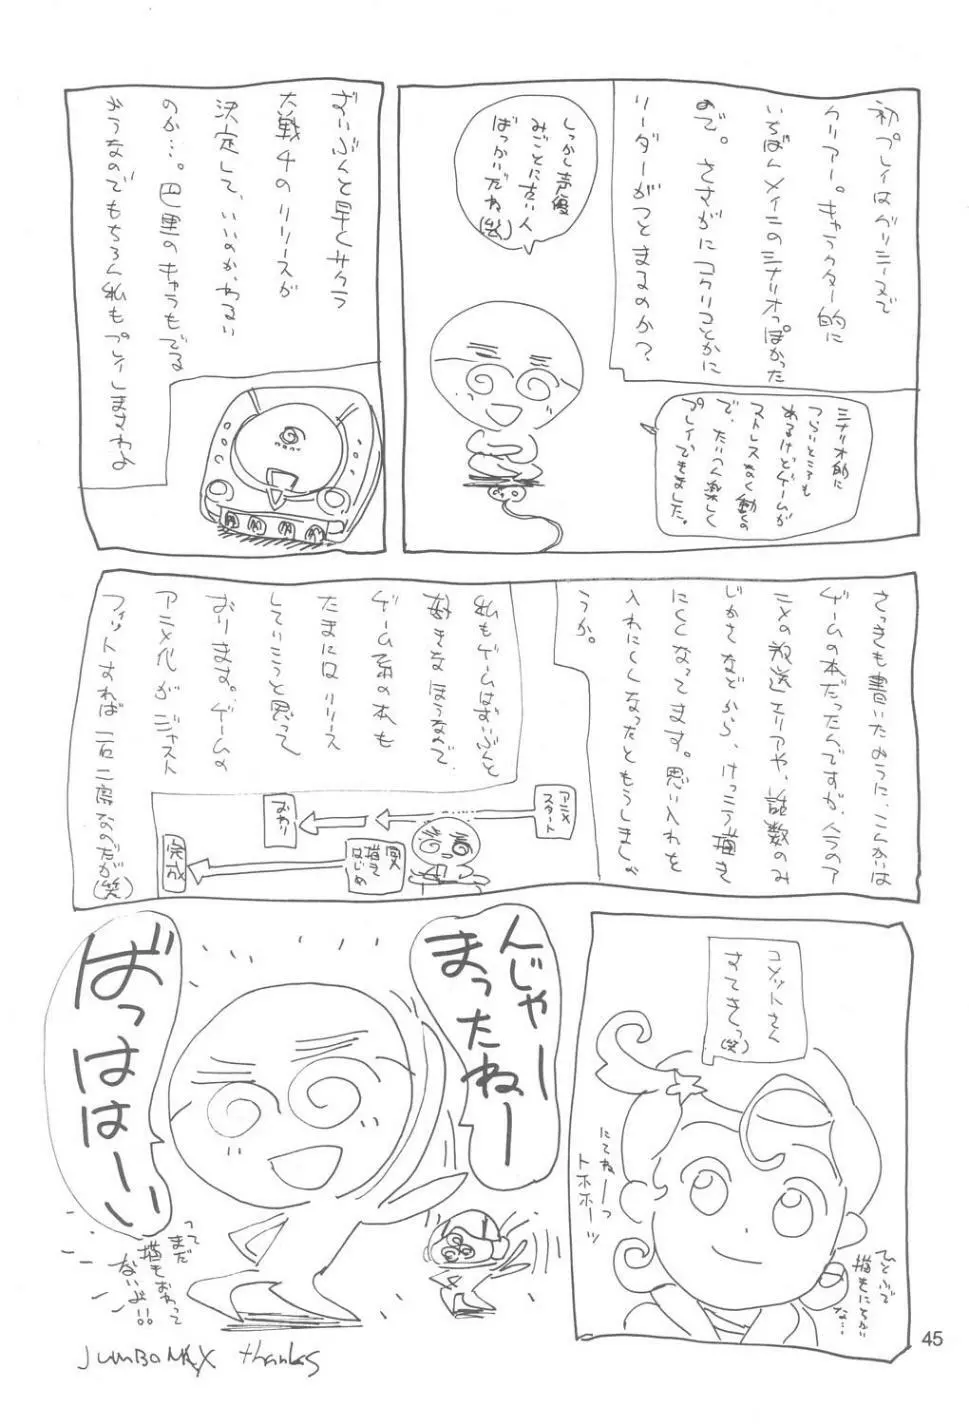 初プレイはグリシーヌで
クリアー。キャラクター的に
いちばんメインのシナリオっぽかった
ので。さすがにコクリコとかに
リーダーがつとまるのか?
しっかし声優
みごとに古い人
ばっかいだね(笑)
シナリオ的に
つらいところも
あるけどゲームが
ストレスなく動くの
で、たいへん楽しく
プレイできました。
ずいぶんと早くサクラ
大戦4のリリースが
決定して、いいのか、わるい
のか…。巴里のキャラもでる
ようなのでもちろん私もプレイしますわよ
さっきも書いたように、こんかいは
ゲームの本だったんですが、今うのア
ニメの放送エリアや、話数のみ
じかさなどから、けっこう描き
にくくなってます。思い入れを
入れにくくなったともうしましょ
うか。
私もゲームはずいぶんと
好きなほうなんで、
ゲーム系の本も
たまにはリリース
していこうと思って
おります。ゲームの
アニメ化がジャスト
フィットすれば一石二鳥なのだが(笑)
アニメ
スタート
おわり
描き
はじめ
完成
コメットさん
すてきっ(笑)
にてねーっ
トホホーッ
ひとふで
描きにちかい
な…
んじゃー
まったねー
ばっははーい
って
まだ
描きおわって
ないよ!!
JUMBOMAX thanks
45